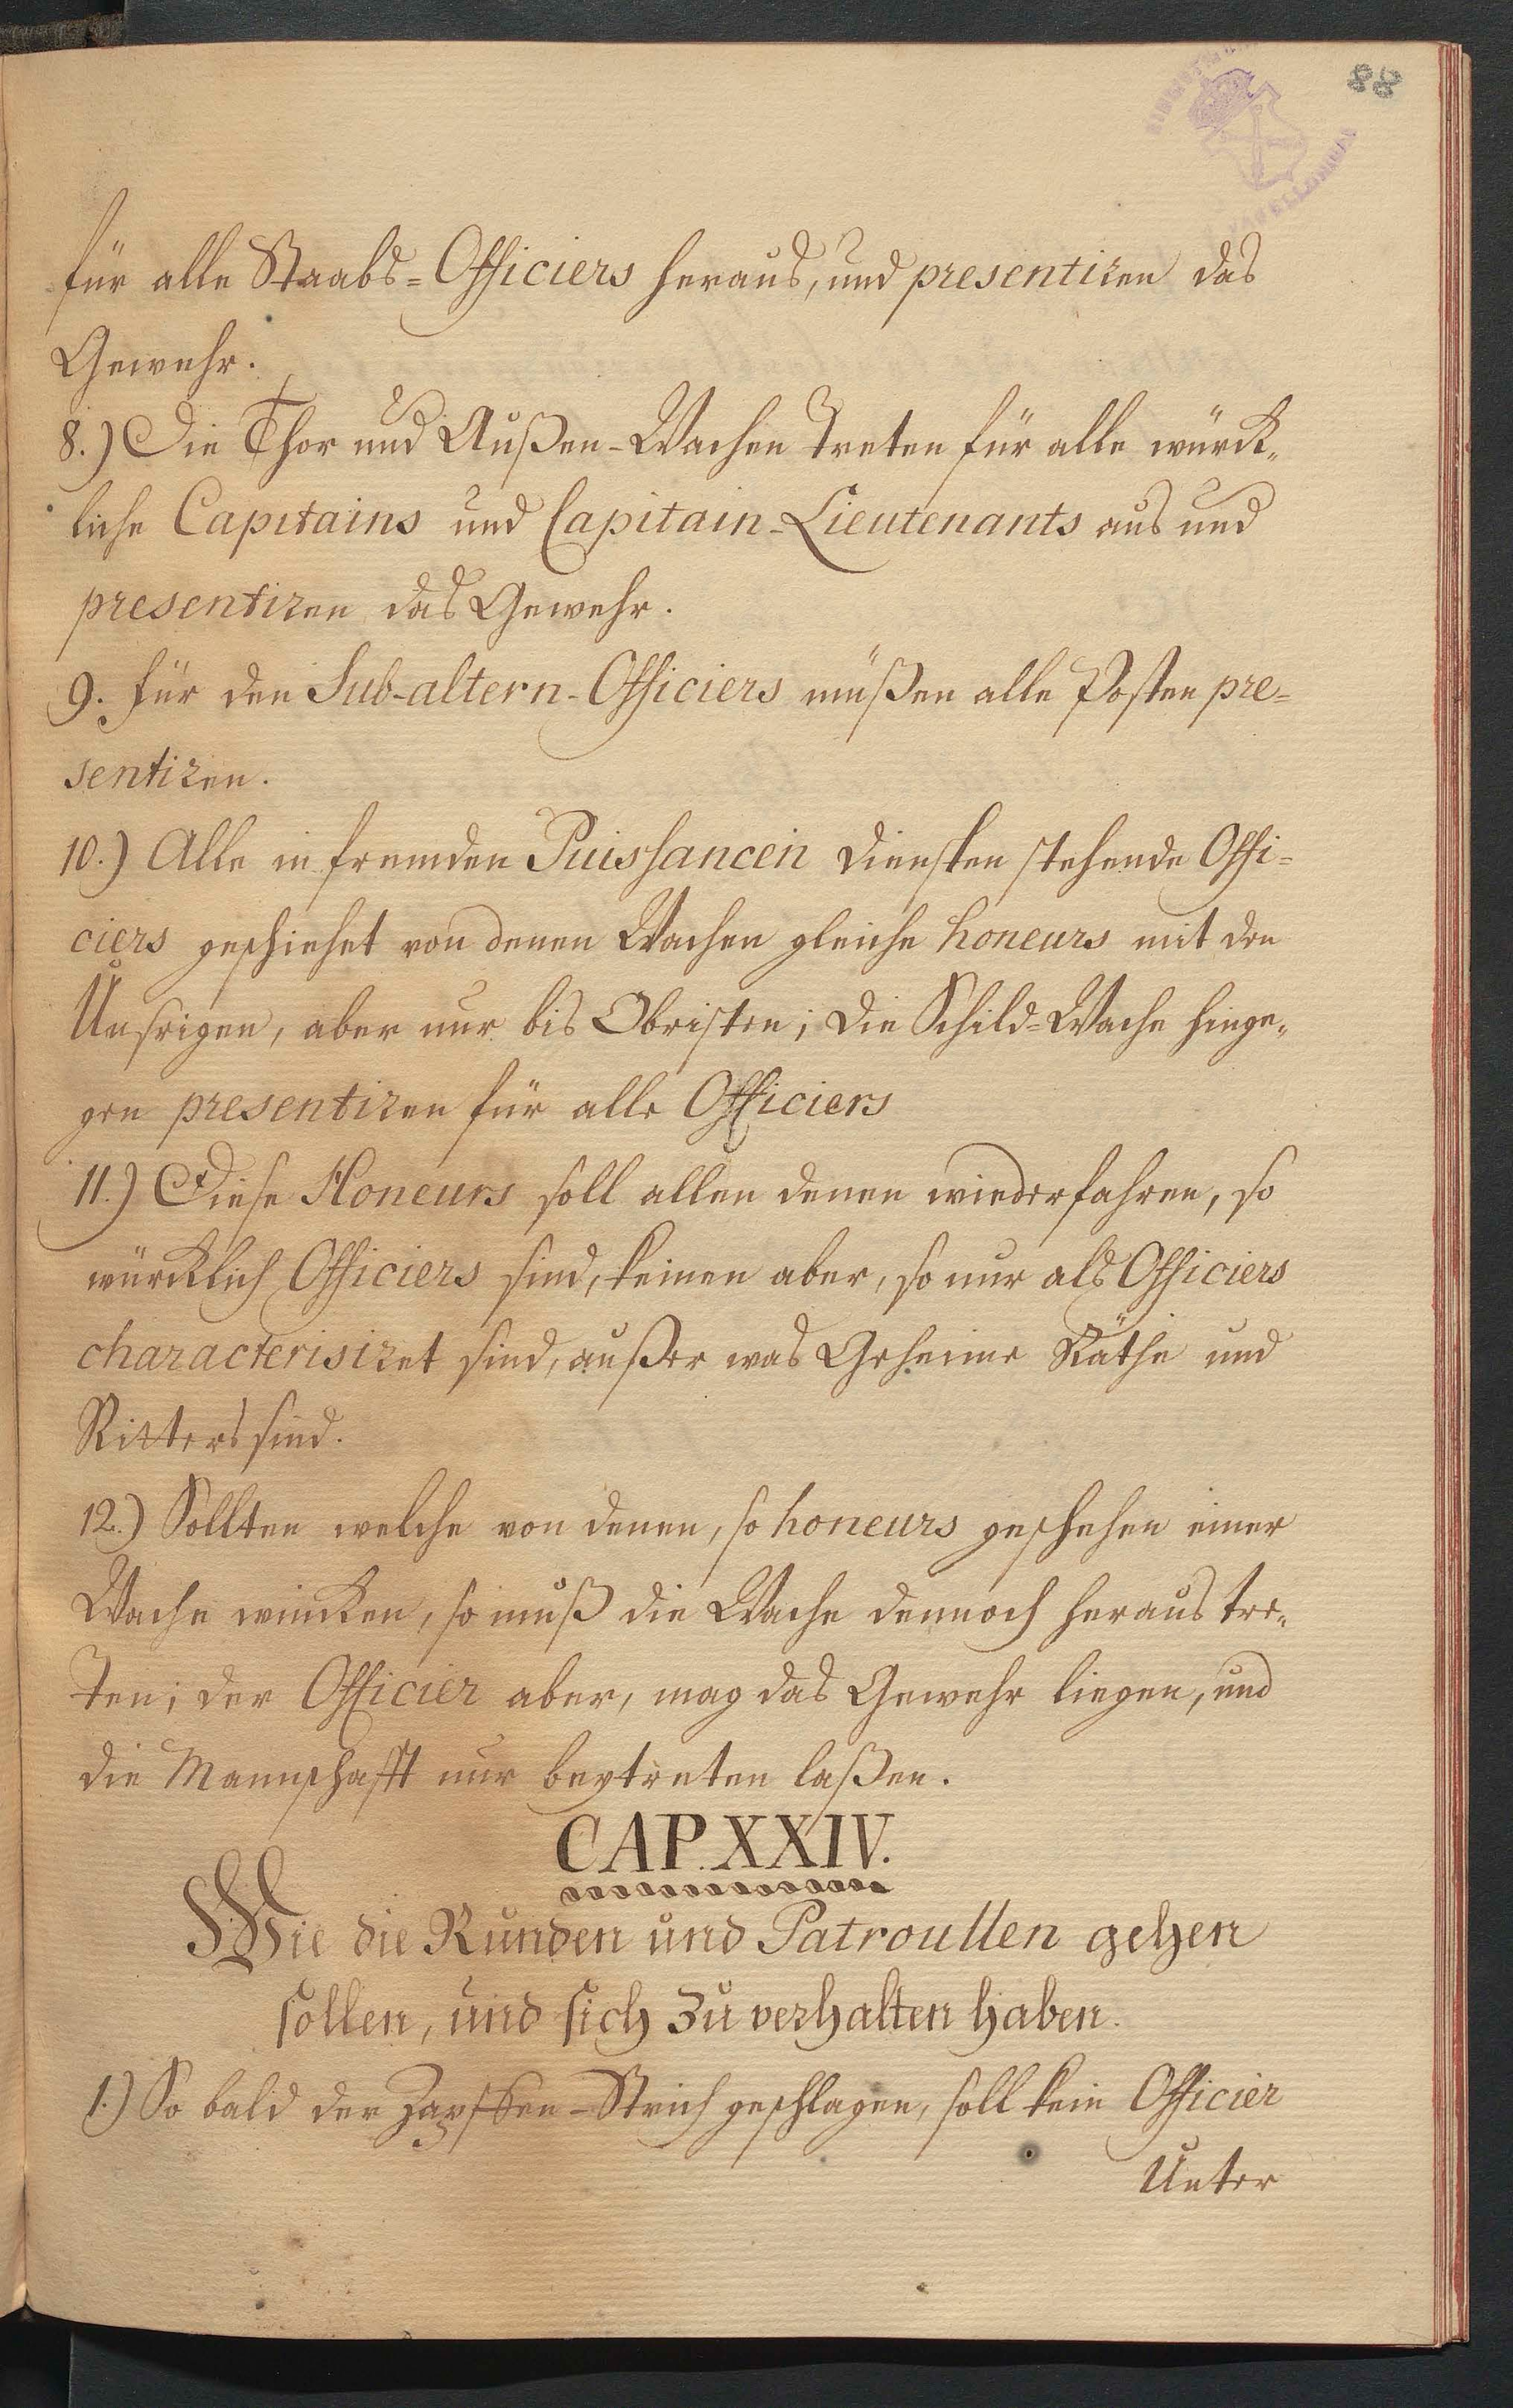 88
für alle Staabs=Officiers heraus, und presentiren das
Gewehr.
8.) Die Thor und Außen-Wachen treten für alle würck-
liche Capitains und Capitain-Lieutenants aus und
presentiren das Gewehr.
9. für den Sub-altern-Officiers müßen alle Posten pre-
sentiren.
10.) Alle in fremden Puissancen Diensten stehende Offi-
ciers geschiehet von denen Wachen gleiche honeurs mit den
Unsrigen, aber nur bis Obristen; die Schild=Wache hinge-
gen presentiren für alle Officiers
11.) Diese Honeurs soll allen denen wiederfahren, so
würcklich Officiers sind, keinen aber, so nur als Officiers
characterisiret sind, außer was Geheime Räthe und
Ritters sind.
12.) Sollten welche von denen, so honeurs geschehen einer
Wache wincken, so muß die Wache dennoch heraus tre-
ten; der Officier aber, mag das Gewehr liegen, und
die Mannschafft nur beytreten laßen.
CAP. XXIV.
Wie die Runden und Patroullen gehen
sollen, und sich zu verhalten haben.
1.) So bald der Zapffen-Strich geschlagen, soll kein Officier
Unter